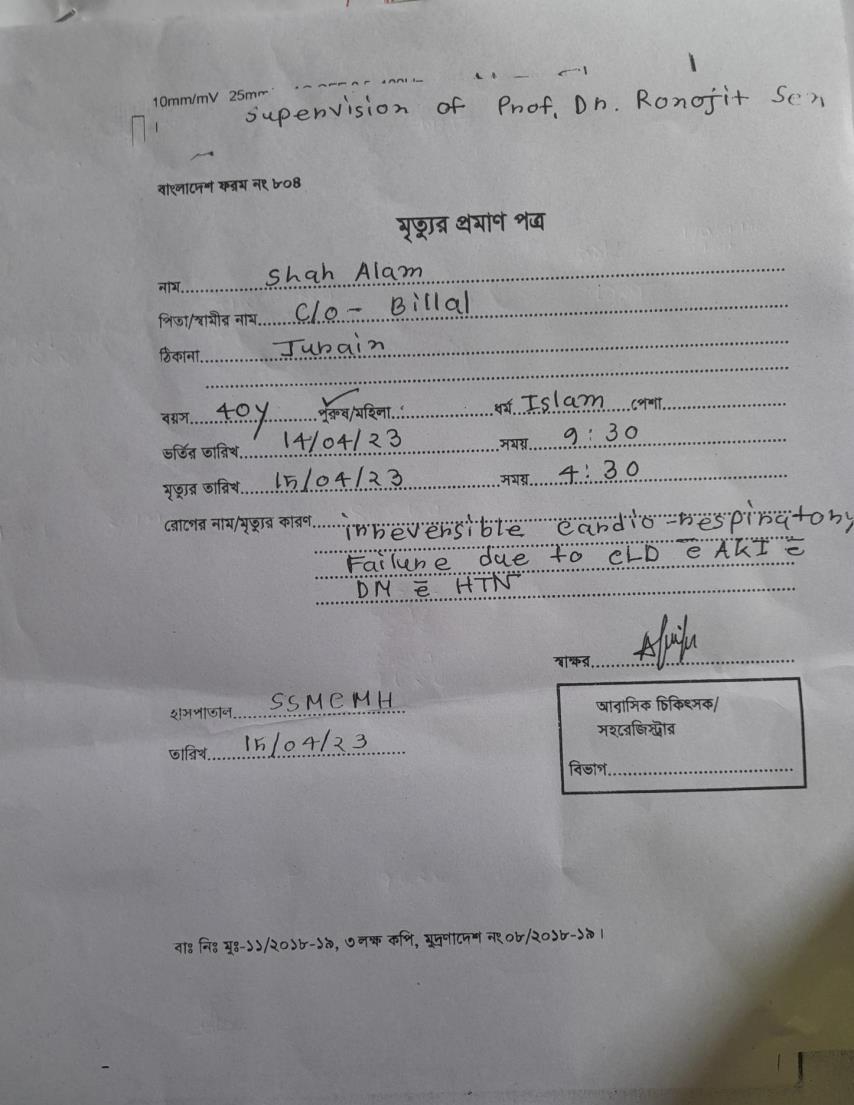 10mm/mV 25mm
Supervision of Prof. Dr. Ronojit Sen
বাংলাদেশ ফরম নং ৮০৪
মৃত্যুর প্রমাণ পত্র
নাম.....Shah Alam
পিতা/স্বামীর নাম.....C/O - Billal
ঠিকানা.....Jurain
বয়স.....40y.....পুরুষ/মহিলা.....ধর্ম Islam পেশা.....
ভর্তির তারিখ.....14/04/23.....সময়.....9:30
মৃত্যুর তারিখ.....15/04/23.....সময়.....4:30
রোগের নাম/মৃত্যুর কারণ.....irreversible cardio-respiratory
Failure due to CLD c̄ AKI c̄
DM c̄ HTN
স্বাক্ষর.....
হাসপাতাল.....SSMCMH
তারিখ.....15/04/23
আবাসিক চিকিৎসক/
সহরেজিস্ট্রার
বিভাগ.....
বাঃ নিঃ মুঃ-১১/২০১৮-১৯, ৩লক্ষ কপি, মুদ্রণাদেশ নং ০৮/২০১৮-১৯।